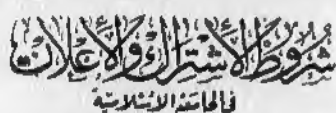 شُرُوطُ الْاِشْتِرَاكِ وَالْاِعْلَانَاتِ
في الجامعة الاسلامية